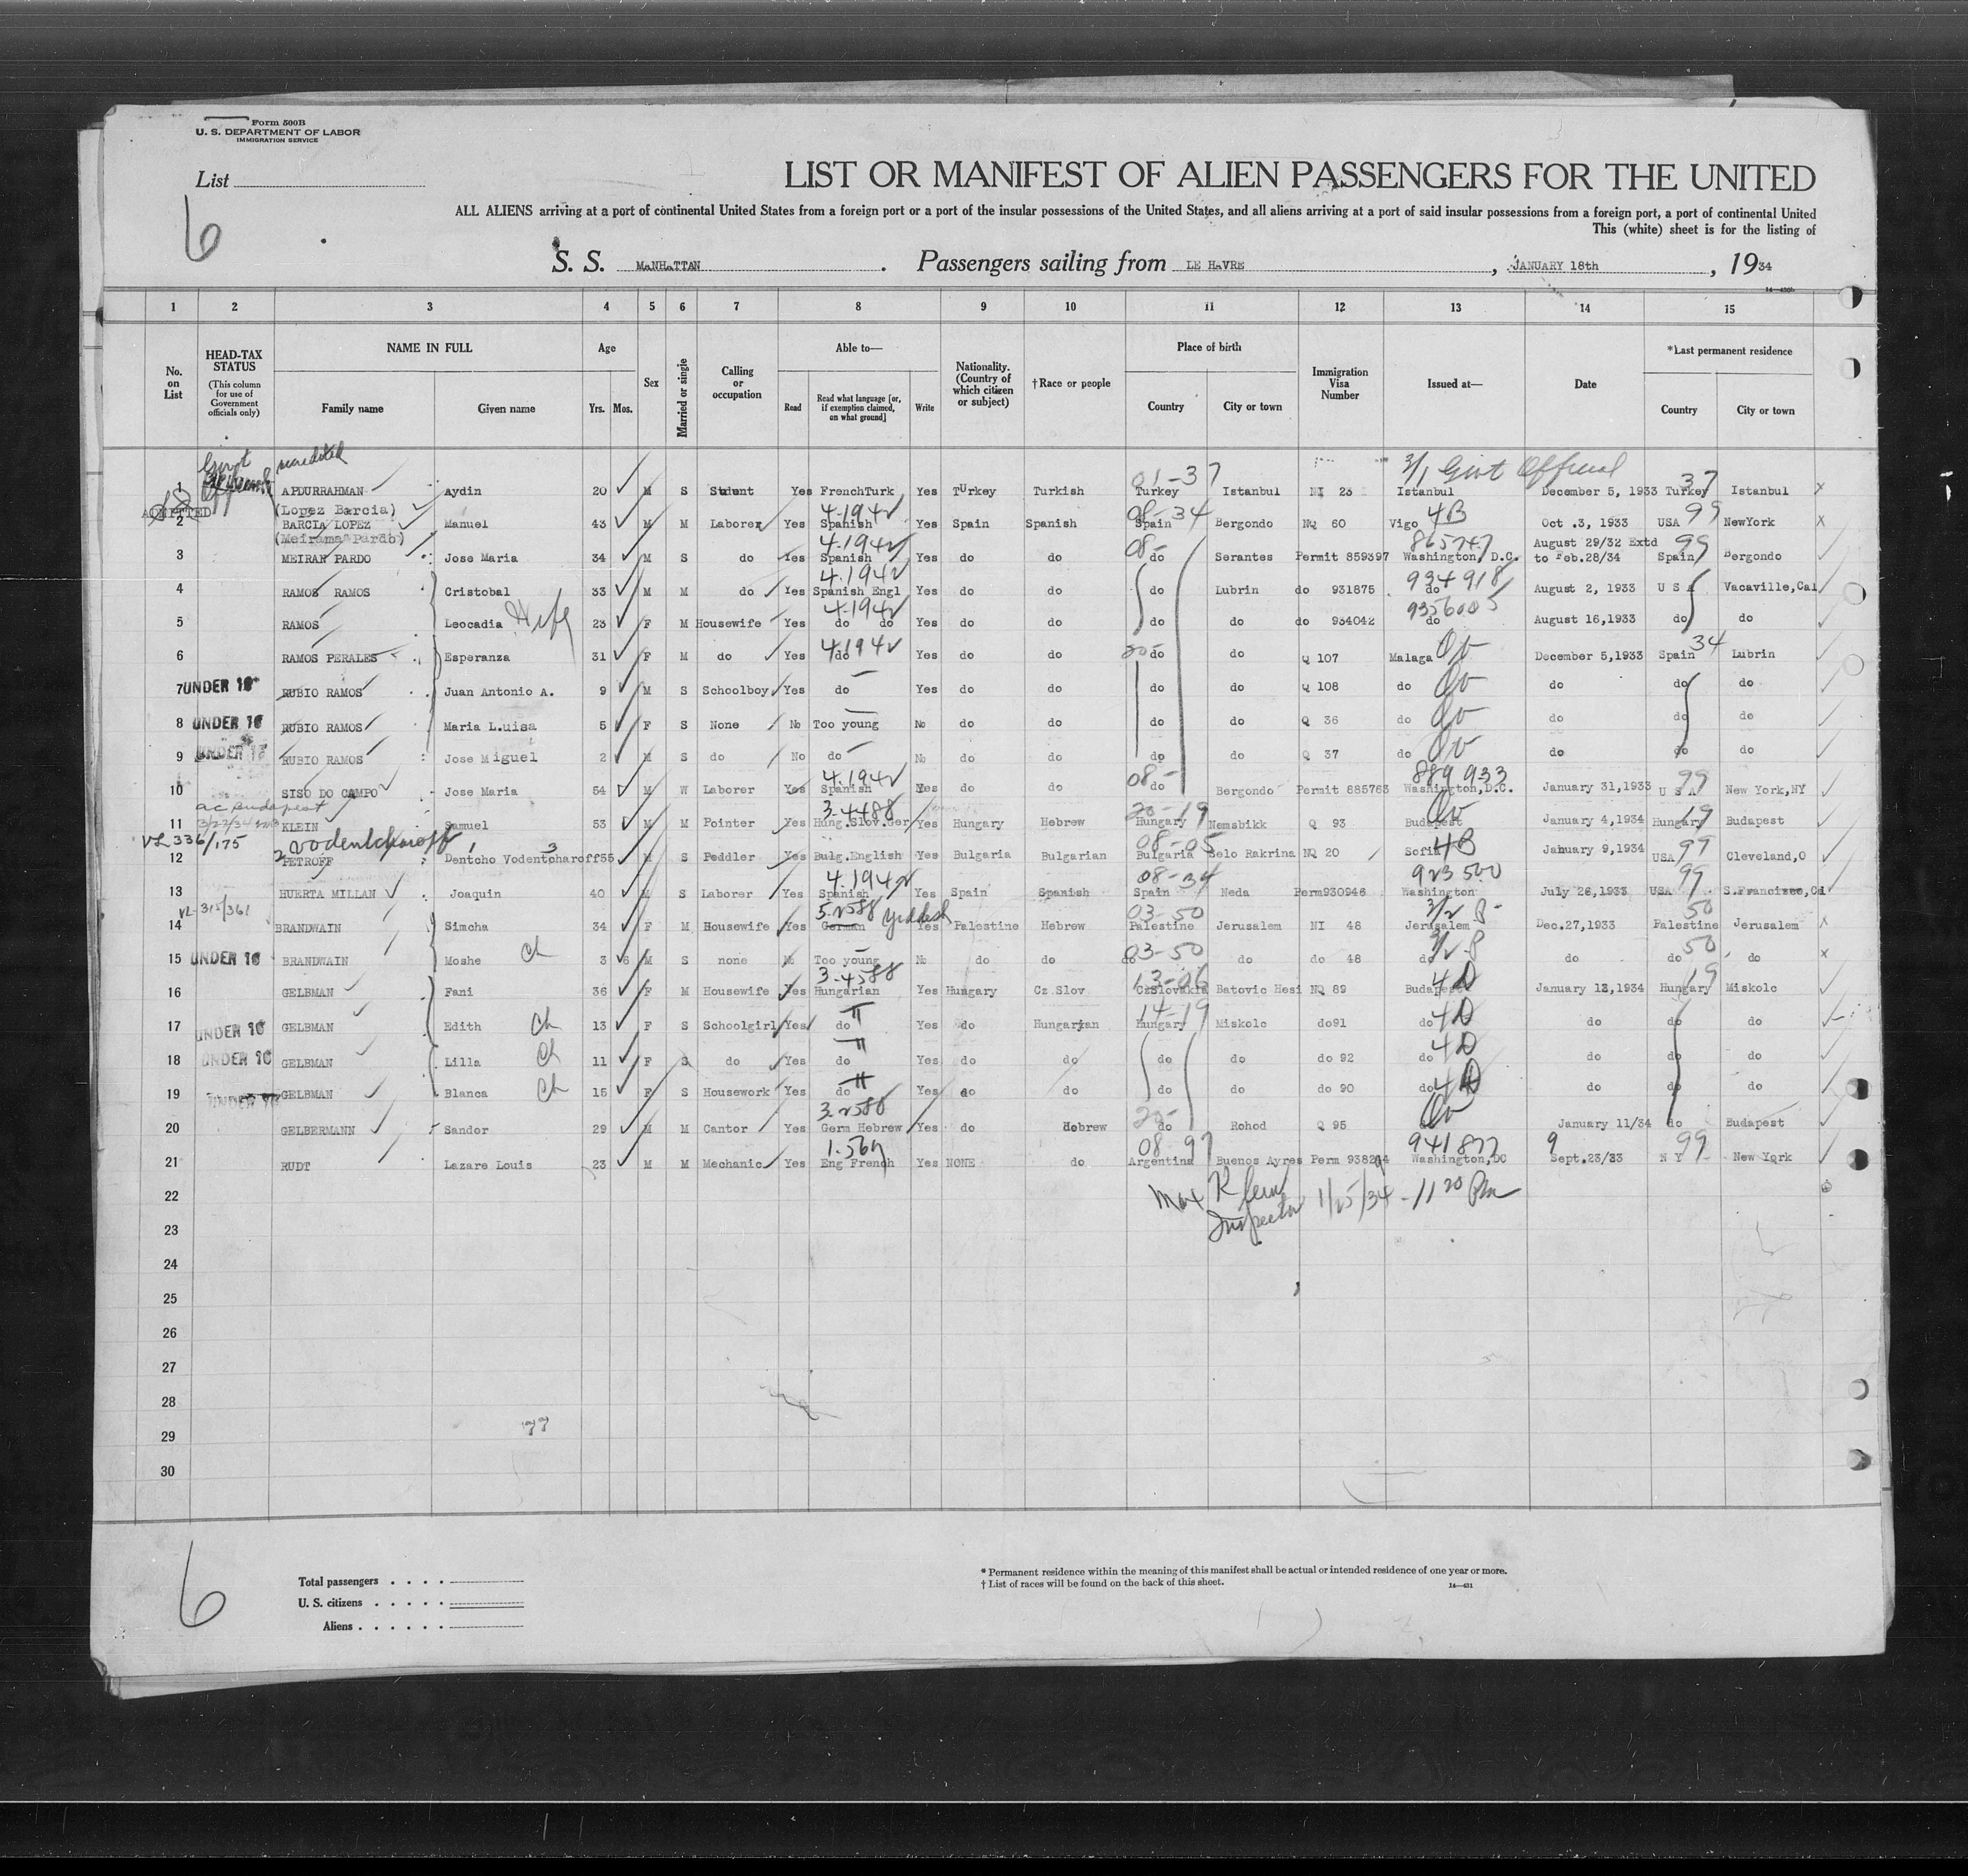 Form 500B
U. S. DEPARTMENT OF LABOR
IMMIGRATION SERVICE
List
6
LIST OR MANIFEST OF ALIEN PASSENGERS FOR THE UNITED
ALL ALIENS arriving at a port of continental United States from a foreign port or a port of the insular possessions of the United States, and all aliens arriving at a port of said insular possessions from a foreign port, a port of continental United
This (white) sheet is for the listing of
S. S. MANHATTAN . Passengers sailing from LE HAVRE , JANUARY 18th , 19 34
1 2 3 4 5 6 7 8 9 10 11 12 13 14 15
No. on List
HEAD-TAX STATUS
(This column for use of Government officials only)
NAME IN FULL
Family name
Given name
Age
Yrs. Mos.
Sex
Married or single
Calling or occupation
Able to—
Read
Read what language [or, if exemption claimed, on what ground]
Write
Nationality. (Country of which citizen or subject)
†Race or people
Place of birth
Country
City or town
Immigration Visa Number
Issued at—
Date
*Last permanent residence
Country
City or town
Govt accredited 01-37 3/1 Govt Official 37
1 APDURRAHMAN Aydin 20 M S Student Yes FrenchTurk Yes Turkey Turkish Turkey Istanbul NI 23 Istanbul December 5, 1933 Turkey Istanbul X
ADMITTED (Lopez Barcia) 4.194 08-34 4B 99
2 BARCIA LOPEZ Manuel 43 M M Laborer Yes Spanish Yes Spain Spanish Spain Bergondo NQ 60 Vigo Oct .3, 1933 USA NewYork X
(Meirama Pardo) 4.194 08- 865747 August 29/32 Extd 99
3 MEIRAN PARDO Jose Maria 34 M S do Yes Spanish Yes do do do Serantes Permit 859397 Washington, D.C. to Feb.28/34 Spain Bergondo
4.194 934918
4 RAMOS RAMOS Cristobal 33 M M do Yes Spanish Engl Yes do do do Lubrin do 931875 do August 2, 1933 U S A Vacaville,Cal
Wife 4.194
5 RAMOS Leocadia 23 F M Housewife Yes do do Yes do do do do do 934042 do August 16,1933 do do
4.194 34
6 RAMOS PERALES Esperanza 31 F M do Yes do Yes do do do do Q 107 Malaga December 5,1933 Spain Lubrin
7 UNDER 16 RUBIO RAMOS Juan Antonio A. 9 M S Schoolboy Yes do Yes do do do do Q 108 do do do do
8 UNDER 16 RUBIO RAMOS Maria Luisa 5 F S None No Too young No do do do do Q 36 do do do do
9 UNDER 16 RUBIO RAMOS Jose Miguel 2 M S do No do No do do do do Q 37 do do do do
4.194 08- 889933 99
10 SISO DO CAMPO Jose Maria 54 M W Laborer Yes Spanish Yes do do do Bergondo Permit 885763 Washington,D.C. January 31,1933 U S A New York,NY
ac Budapest 3-4488 20-19 19
11 KLEIN Samuel 53 M M Pointer Yes Hung.Slov.Ger Yes Hungary Hebrew Hungary Nemsbikk Q 93 Budapest January 4,1934 Hungary Budapest
VL 336/175 2 Vodentcharoff 1 3 08-05 4B 99
12 PETROFF Dentcho Vodentcharoff 55 M S Peddler Yes Bulg.English Yes Bulgaria Bulgarian Bulgaria Selo Rakrina NQ 20 Sofia January 9,1934 USA Cleveland,O
4.194 08-34 923500 99
13 HUERTA MILLAN Joaquin 40 M S Laborer Yes Spanish Yes Spain Spanish Spain Neda Perm930946 Washington July 26,1933 USA S.Francisco,Cal
VL-315/361 5.2588 Yiddish 03-50 3/2 P 50
14 BRANDWAIN Simcha 34 F M Housewife Yes German Yes Palestine Hebrew Palestine Jerusalem NI 48 Jerusalem Dec.27,1933 Palestine Jerusalem X
Ch 03-50 3/2 P 50
15 UNDER 16 BRANDWAIN Moshe 3 6 M S none No Too young No do do do do do 48 do do do do X
3-4588 13-06 4D 19
16 GELBMAN Fani 36 F M Housewife Yes Hungarian Yes Hungary Cz.Slov CzSlovakia Batovic Hesi NQ 89 Budapest January 12,1934 Hungary Miskolc
Ch 14-19 4D
17 UNDER 16 GELBMAN Edith 13 F S Schoolgirl Yes do Yes do Hungarian Hungary Miskolc do91 do do do do
Ch 4D
18 UNDER 16 GELBMAN Lilla 11 F S do Yes do Yes do do do do do 92 do do do do
Ch 4D
19 UNDER 16 GELBMAN Blanca 15 F S Housework Yes do Yes do do do do do 90 do do do do
3-2588
20 GELBERMANN Sandor 29 M M Cantor Yes Germ Hebrew Yes do Hebrew do Rohod Q 95 January 11/34 do Budapest
1.567 08 99 941877 9 99
21 RUDT Lazare Louis 23 M M Mechanic Yes Eng French Yes NONE do Argentina Buenos Ayres Perm Washington,DC Sept.23/33 N Y New York
22 Max Klein 1/25/34 - 11 20 Pm
Inspector
23
24
25
26
27
28
29 77
30
6
Total passengers
U. S. citizens
Aliens
* Permanent residence within the meaning of this manifest shall be actual or intended residence of one year or more.
† List of races will be found on the back of this sheet.
14—431